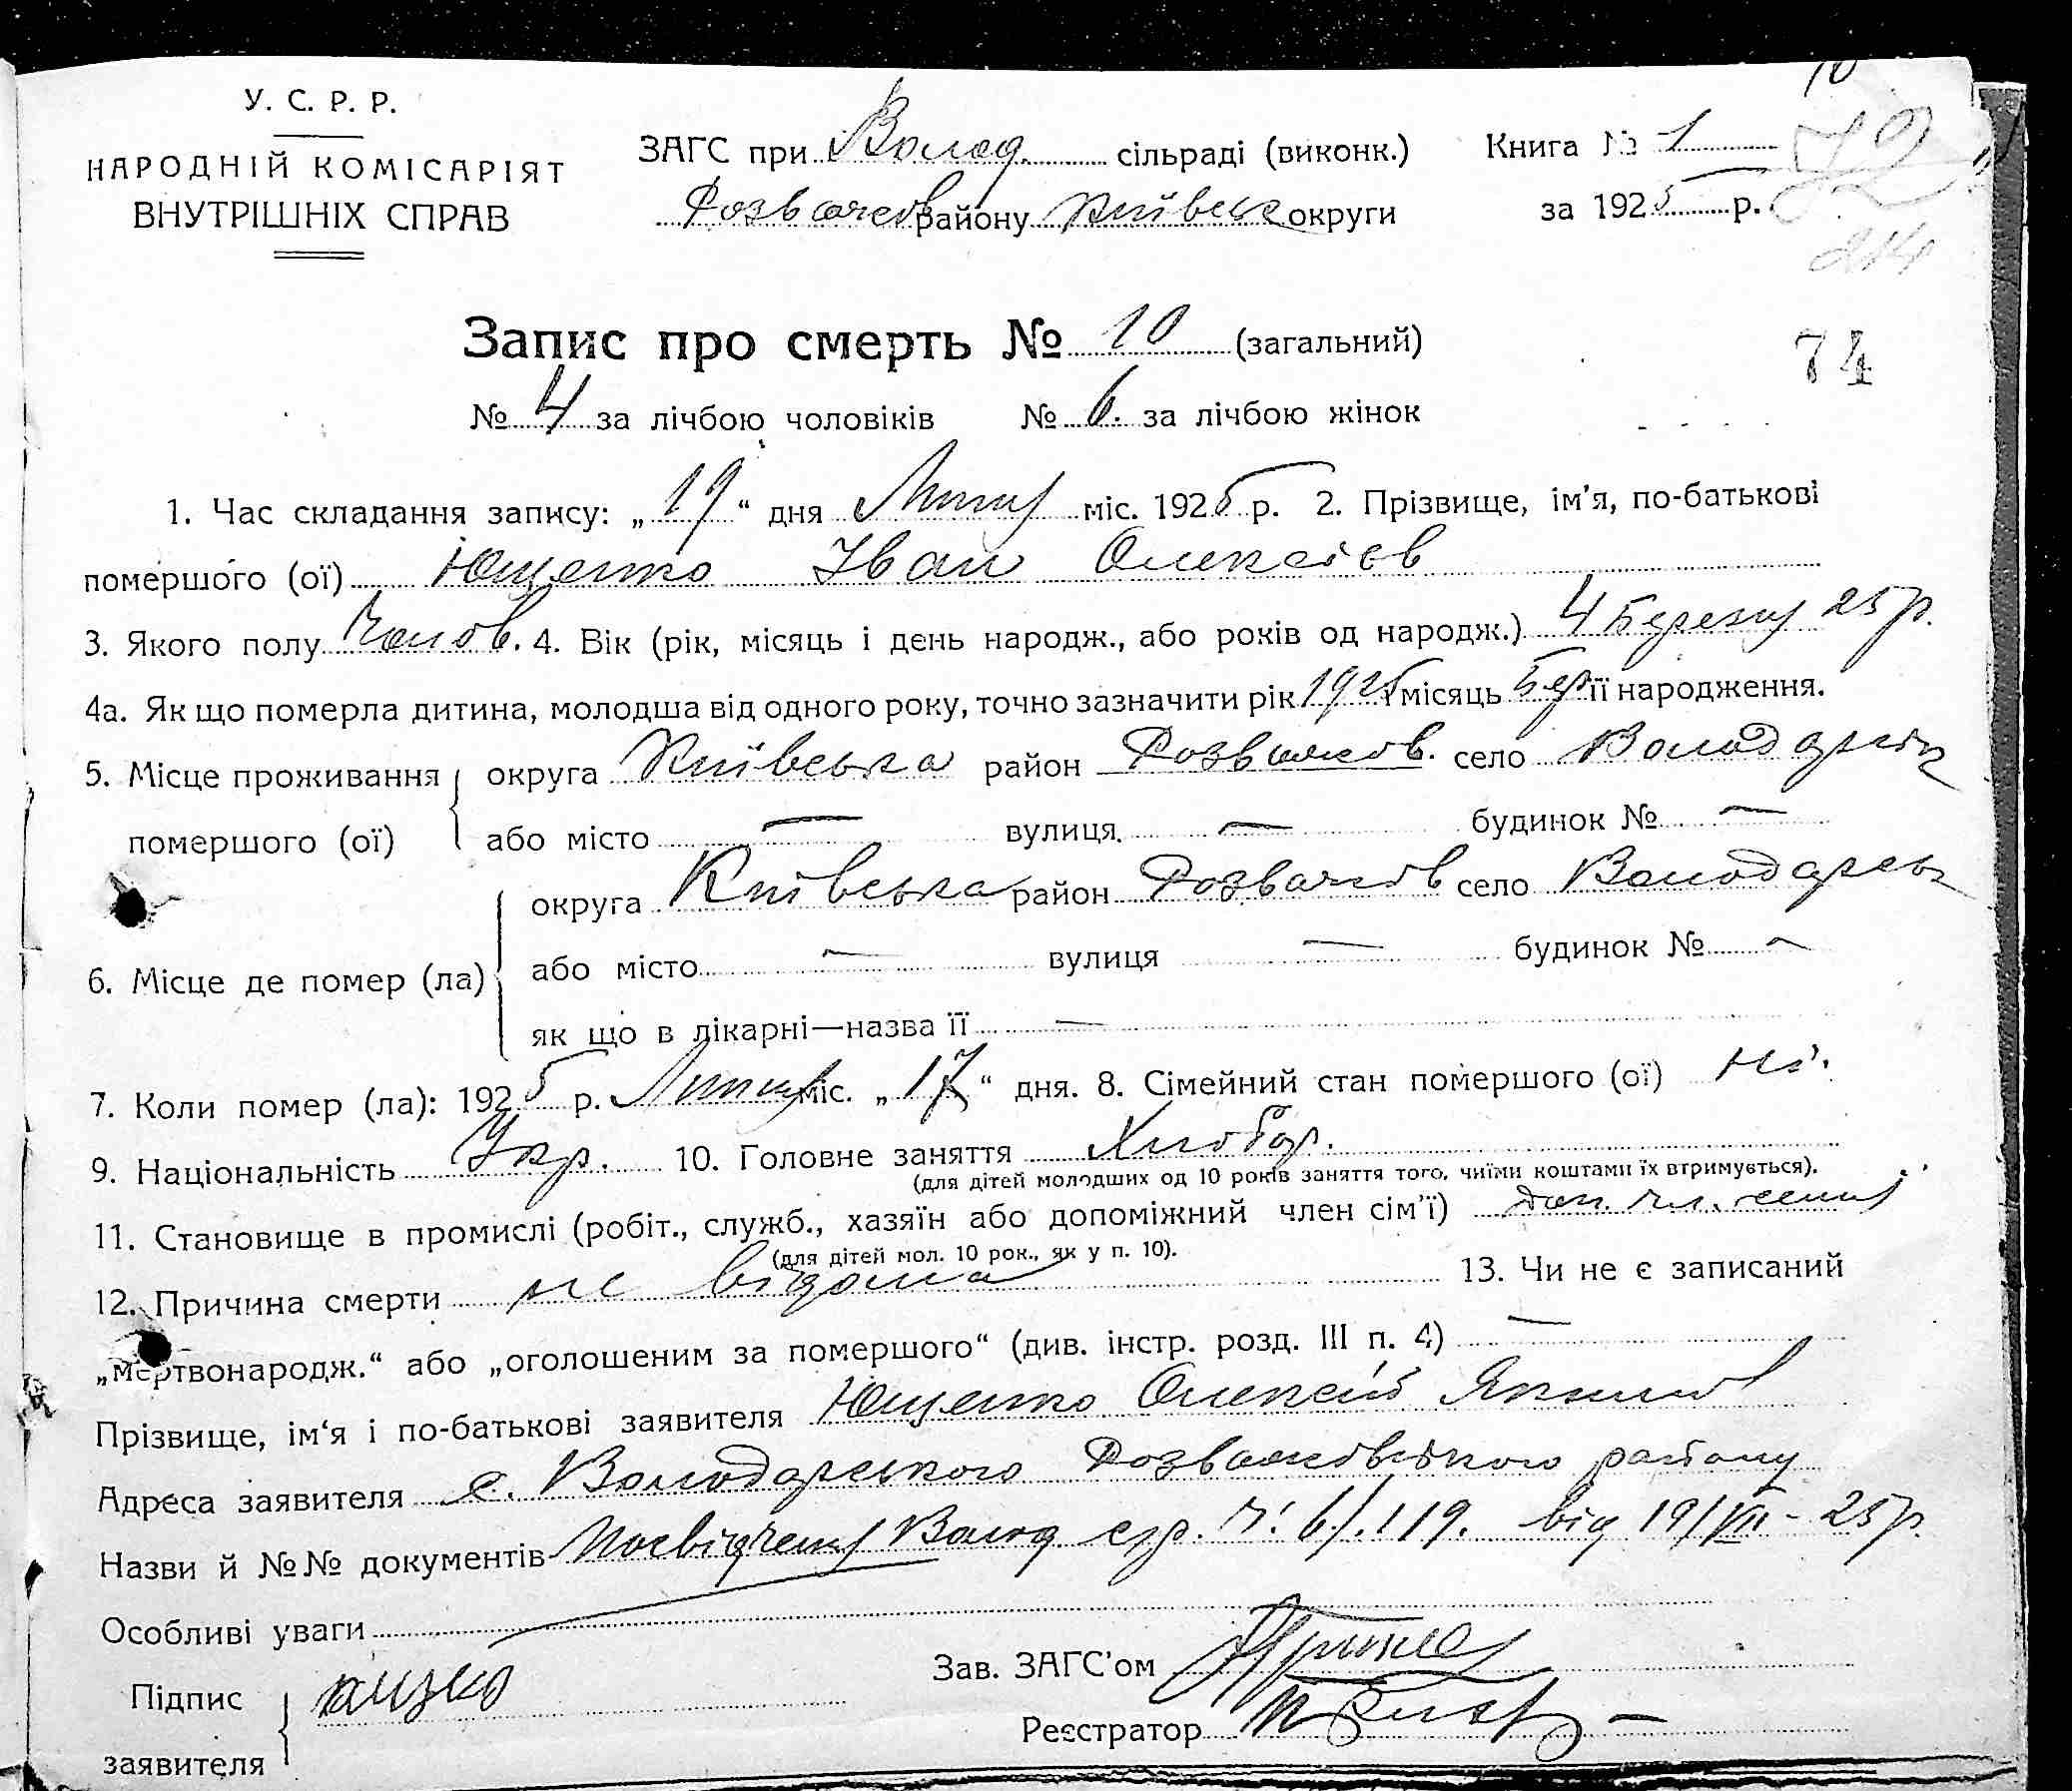 10
У. С. Р. Р.
НАРОДНІЙ КОМІСАРІЯТ
ВНУТРІШНІХ СПРАВ
ЗАГС при Волод. сільраді (виконк.)
Розважев району Київськ округи
Книга № 1
за 1925 р.
72
214
Запис про смерть № 10 (загальний)
74
№ 4 за лічбою чоловіків № 6. за лічбою жінок
1. Час складання запису: „19“ дня Липня міс. 1925 р. 2. Прізвище, ім'я, по-батькові
помершого (ої) Ющенко Іван Олексієв
3. Якого полу Чолов. 4. Вік (рік, місяць і день народж., або років од народж.) 4 Березня 25 р.
4а. Як що померла дитина, молодша від одного року, точно зазначити рік 1925 місяць Бер її народження.
5. Місце проживання помершого (ої) округа Київська район Розважов. село Володарськ
або місто — вулиця — будинок № —
6. Місце де помер (ла) округа Київська район Розважів село Володарськ
або місто — вулиця — будинок № —
як що в лікарні—назва її —
7. Коли помер (ла): 1925 р. Липня міс. „17“ дня. 8. Сімейний стан помершого (ої) ні.
9. Національність Укр. 10. Головне заняття Хлібор.
(для дітей молодших од 10 років заняття того, чиїми коштами їх втримується).
11. Становище в промислі (робіт., служб., хазяїн або допоміжний член сім'ї) доп. чл. семї
(для дітей мол. 10 рок., як у п. 10).
12. Причина смерти не відома 13. Чи не є записаний
„мертвонародж.“ або „оголошеним за помершого“ (див. інстр. розд. III п. 4) —
Прізвище, ім'я і по-батькові заявителя Ющенко Олексій
Адреса заявителя с. Володарського Розважівського району
Назви й №№ документів Посвідчення Волод с/р. ч. 6/119. від 19/VII - 25 р.
Особливі уваги
Підпис заявителя
Зав. ЗАГС'ом
Реєстратор